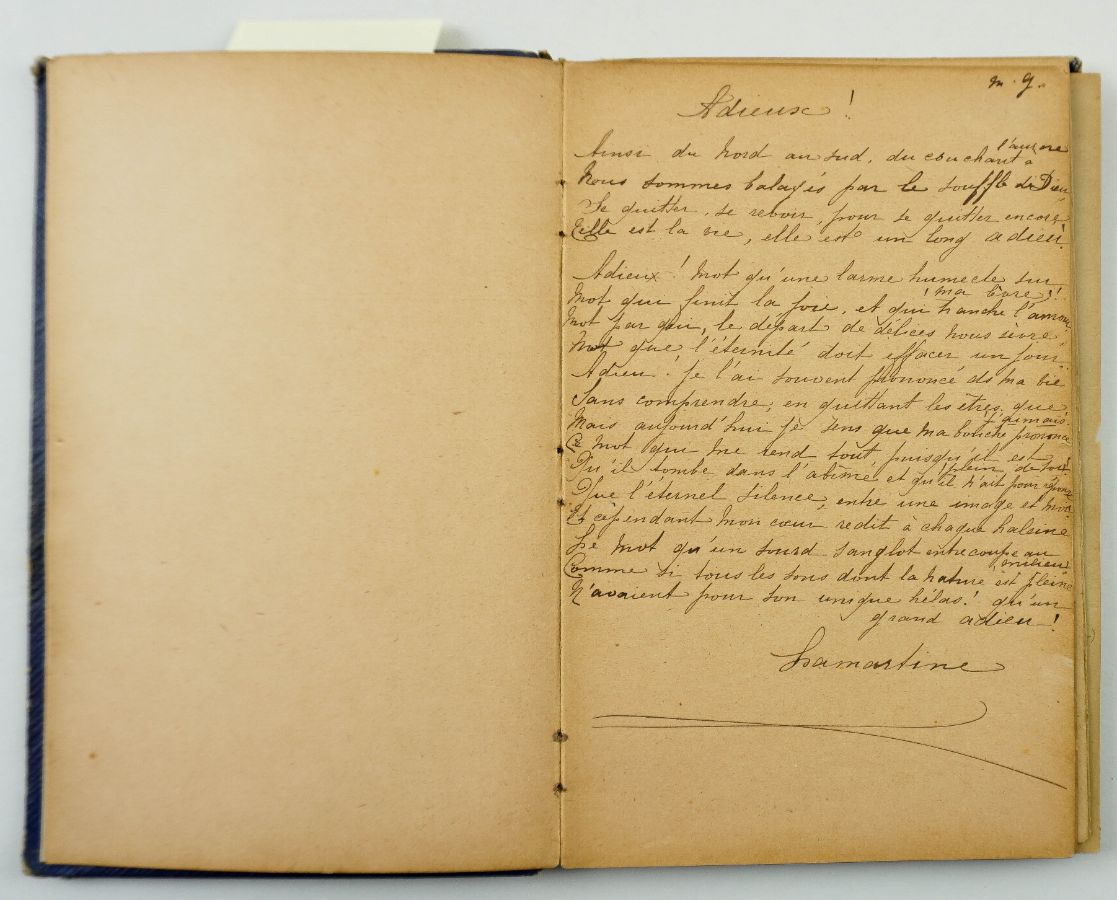 m. g.
Adieux !
Ainsi du Nord au sud, du couchant à l'aurore
Nous sommes balayés par le souffle de Dieu
Se quitter, se revoir, pour se quitter encore,
Telle est la vie, elle est un long adieu.
Adieux ! Mot qu'une larme humecte sur ma lèvre !
Mot qui finit la joie, et qui tranche l'amour
Mot par qui, le départ de délices nous sèvre
Mot que l'éternité doit effacer un jour.
Adieu ! Je l'ai souvent prononcé ds ma vie
Sans comprendre, en quittant les êtres que j'aimais.
Mais aujourd'hui je sens que ma bouche prononce
Ce mot qui me rend tout puisqu'il est plein de toi !
Qu'il tombe dans l'abîme et qu'il n'ait pour réponse
Que l'éternel silence, entre une image et moi.
Et cependant mon cœur redit à chaque haleine
Le mot qu'un sourd sanglot entrecoupe au milieu
Comme si tous les sons dont la nature est pleine
N'avaient pour son unique hélas ! qu'un
grand adieu !
Lamartine